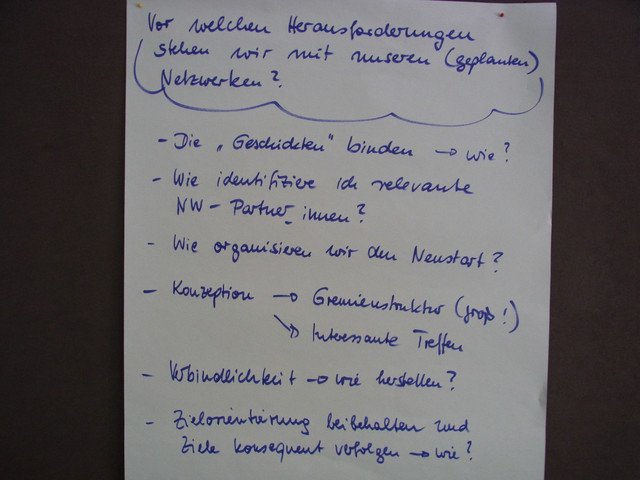 Vor welchen Herausforderungen
stehen wir mit unseren (geplanten)
Netzwerken?
- Die „Geschickten" binden → wie?
- Wie identifiziere ich relevante
NW - Partner_innen?
- Wie organisieren wir den Neustart?
- Konzeption → Gremienstruktur (groß!)
↘ Interessante Treffen
- Verbindlichkeit → wie herstellen?
- Zielorientierung beibehalten und
Ziele konsequent verfolgen → wie?